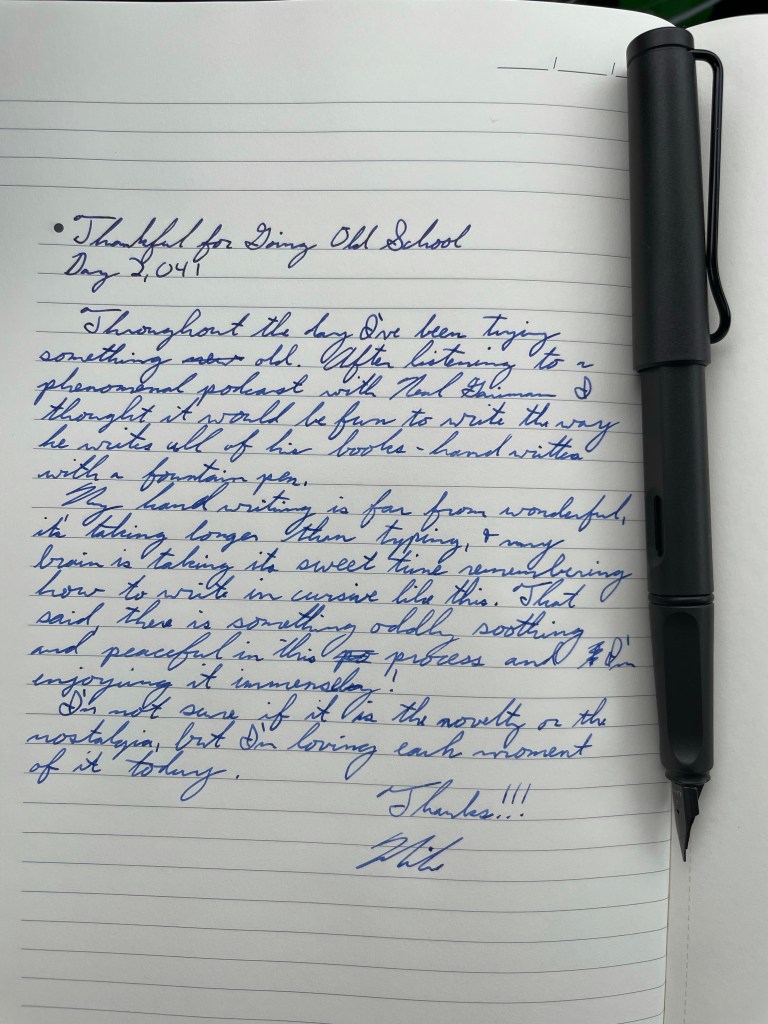 • Thankful for Going Old School
Day 2,041
Throughout the day I've been trying
something new old. After listening to a
phenomenal podcast with Neal Gaiman I
thought it would be fun to write the way
he writes all of his books - hand written
with a fountain pen.
My hand writing is far from wonderful,
it's taking longer than typing, & my
brain is taking its sweet time remembering
how to write in cursive like this. That
said, there is something oddly soothing
and peaceful in this process and I'm
enjoying it immensely!
I'm not sure if it is the novelty or the
nostalgia, but I'm loving each moment
of it today.
Thanks!!!
Mike